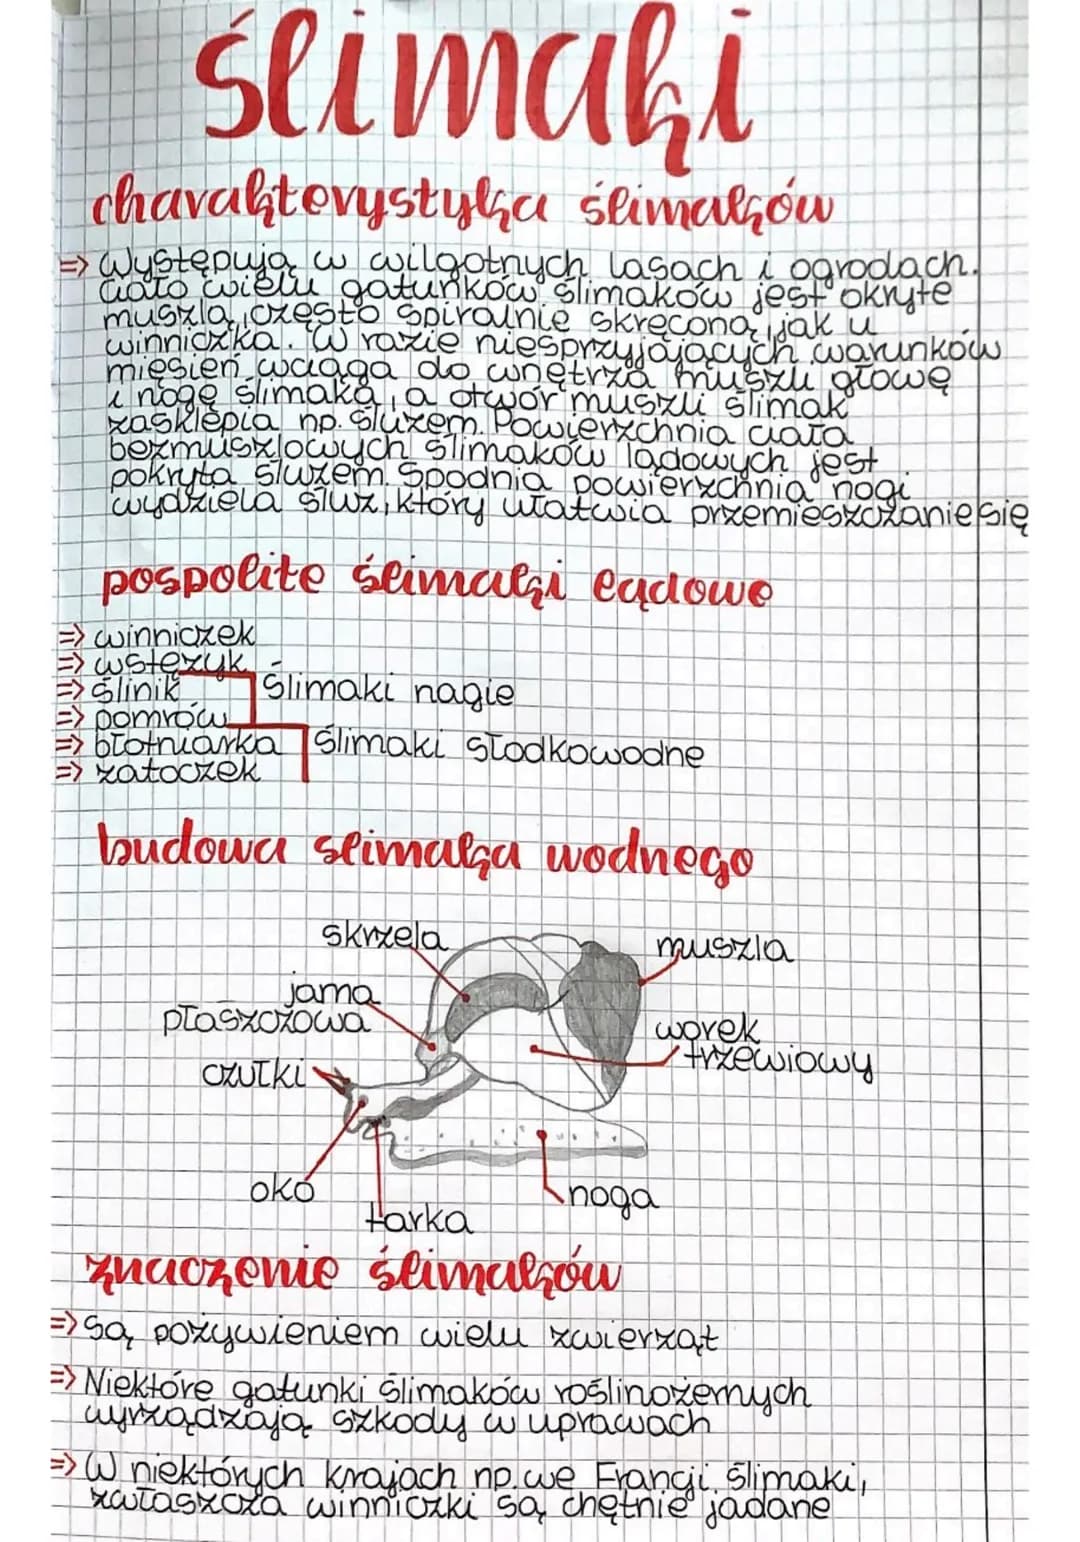 ślimaki
charakterystyka ślimaków
=> Występują w wilgotnych lasach i ogrodach.
Ciało wielu gatunków ślimaków jest okryte
muszlą, często spiralnie skręconą, jak u
winniczka. W razie niesprzyjających warunków
mięsień wciąga do wnętrza muszli głowę
i nogę ślimaka, a otwór muszli ślimak
zasklepia np. śluzem. Powierzchnia ciała
bezmuszlowych ślimaków lądowych jest
pokryta śluzem. Spodnia powierzchnia nogi
wydziela śluz, który ułatwia przemieszczanie się
pospolite ślimaki lądowe
=> winniczek
=> wstężyk
=> ślinik
ślimaki nagie
=> pomrów
=> błotniarka
ślimaki słodkowodne
=> zatoczek
budowa slimaka wodnego
skrzela
muszla
jama
płaszczowa
worek
trzewiowy
czułki
oko
noga
tarka
znaczenie ślimaków
=> Są pożywieniem wielu zwierząt
=> Niektóre gatunki ślimaków roślinożernych
wyrządzają szkody w uprawach
=> W niektórych krajach np. we Francji ślimaki,
zwłaszcza winniczki są chętnie jadane